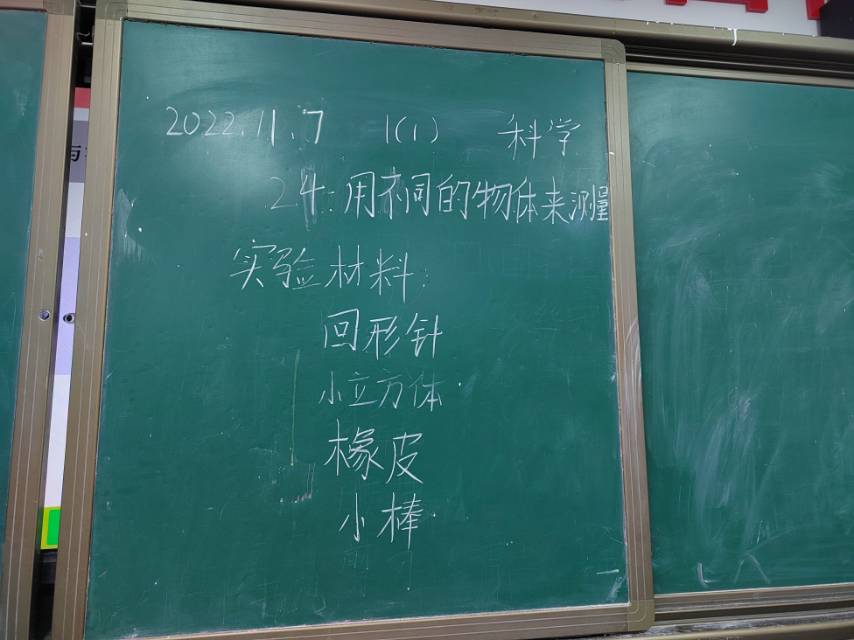 2022.11.7 1(1) 科学
2.4:用不同的物体来测量
实验材料:
回形针
小立方体
橡皮
小棒